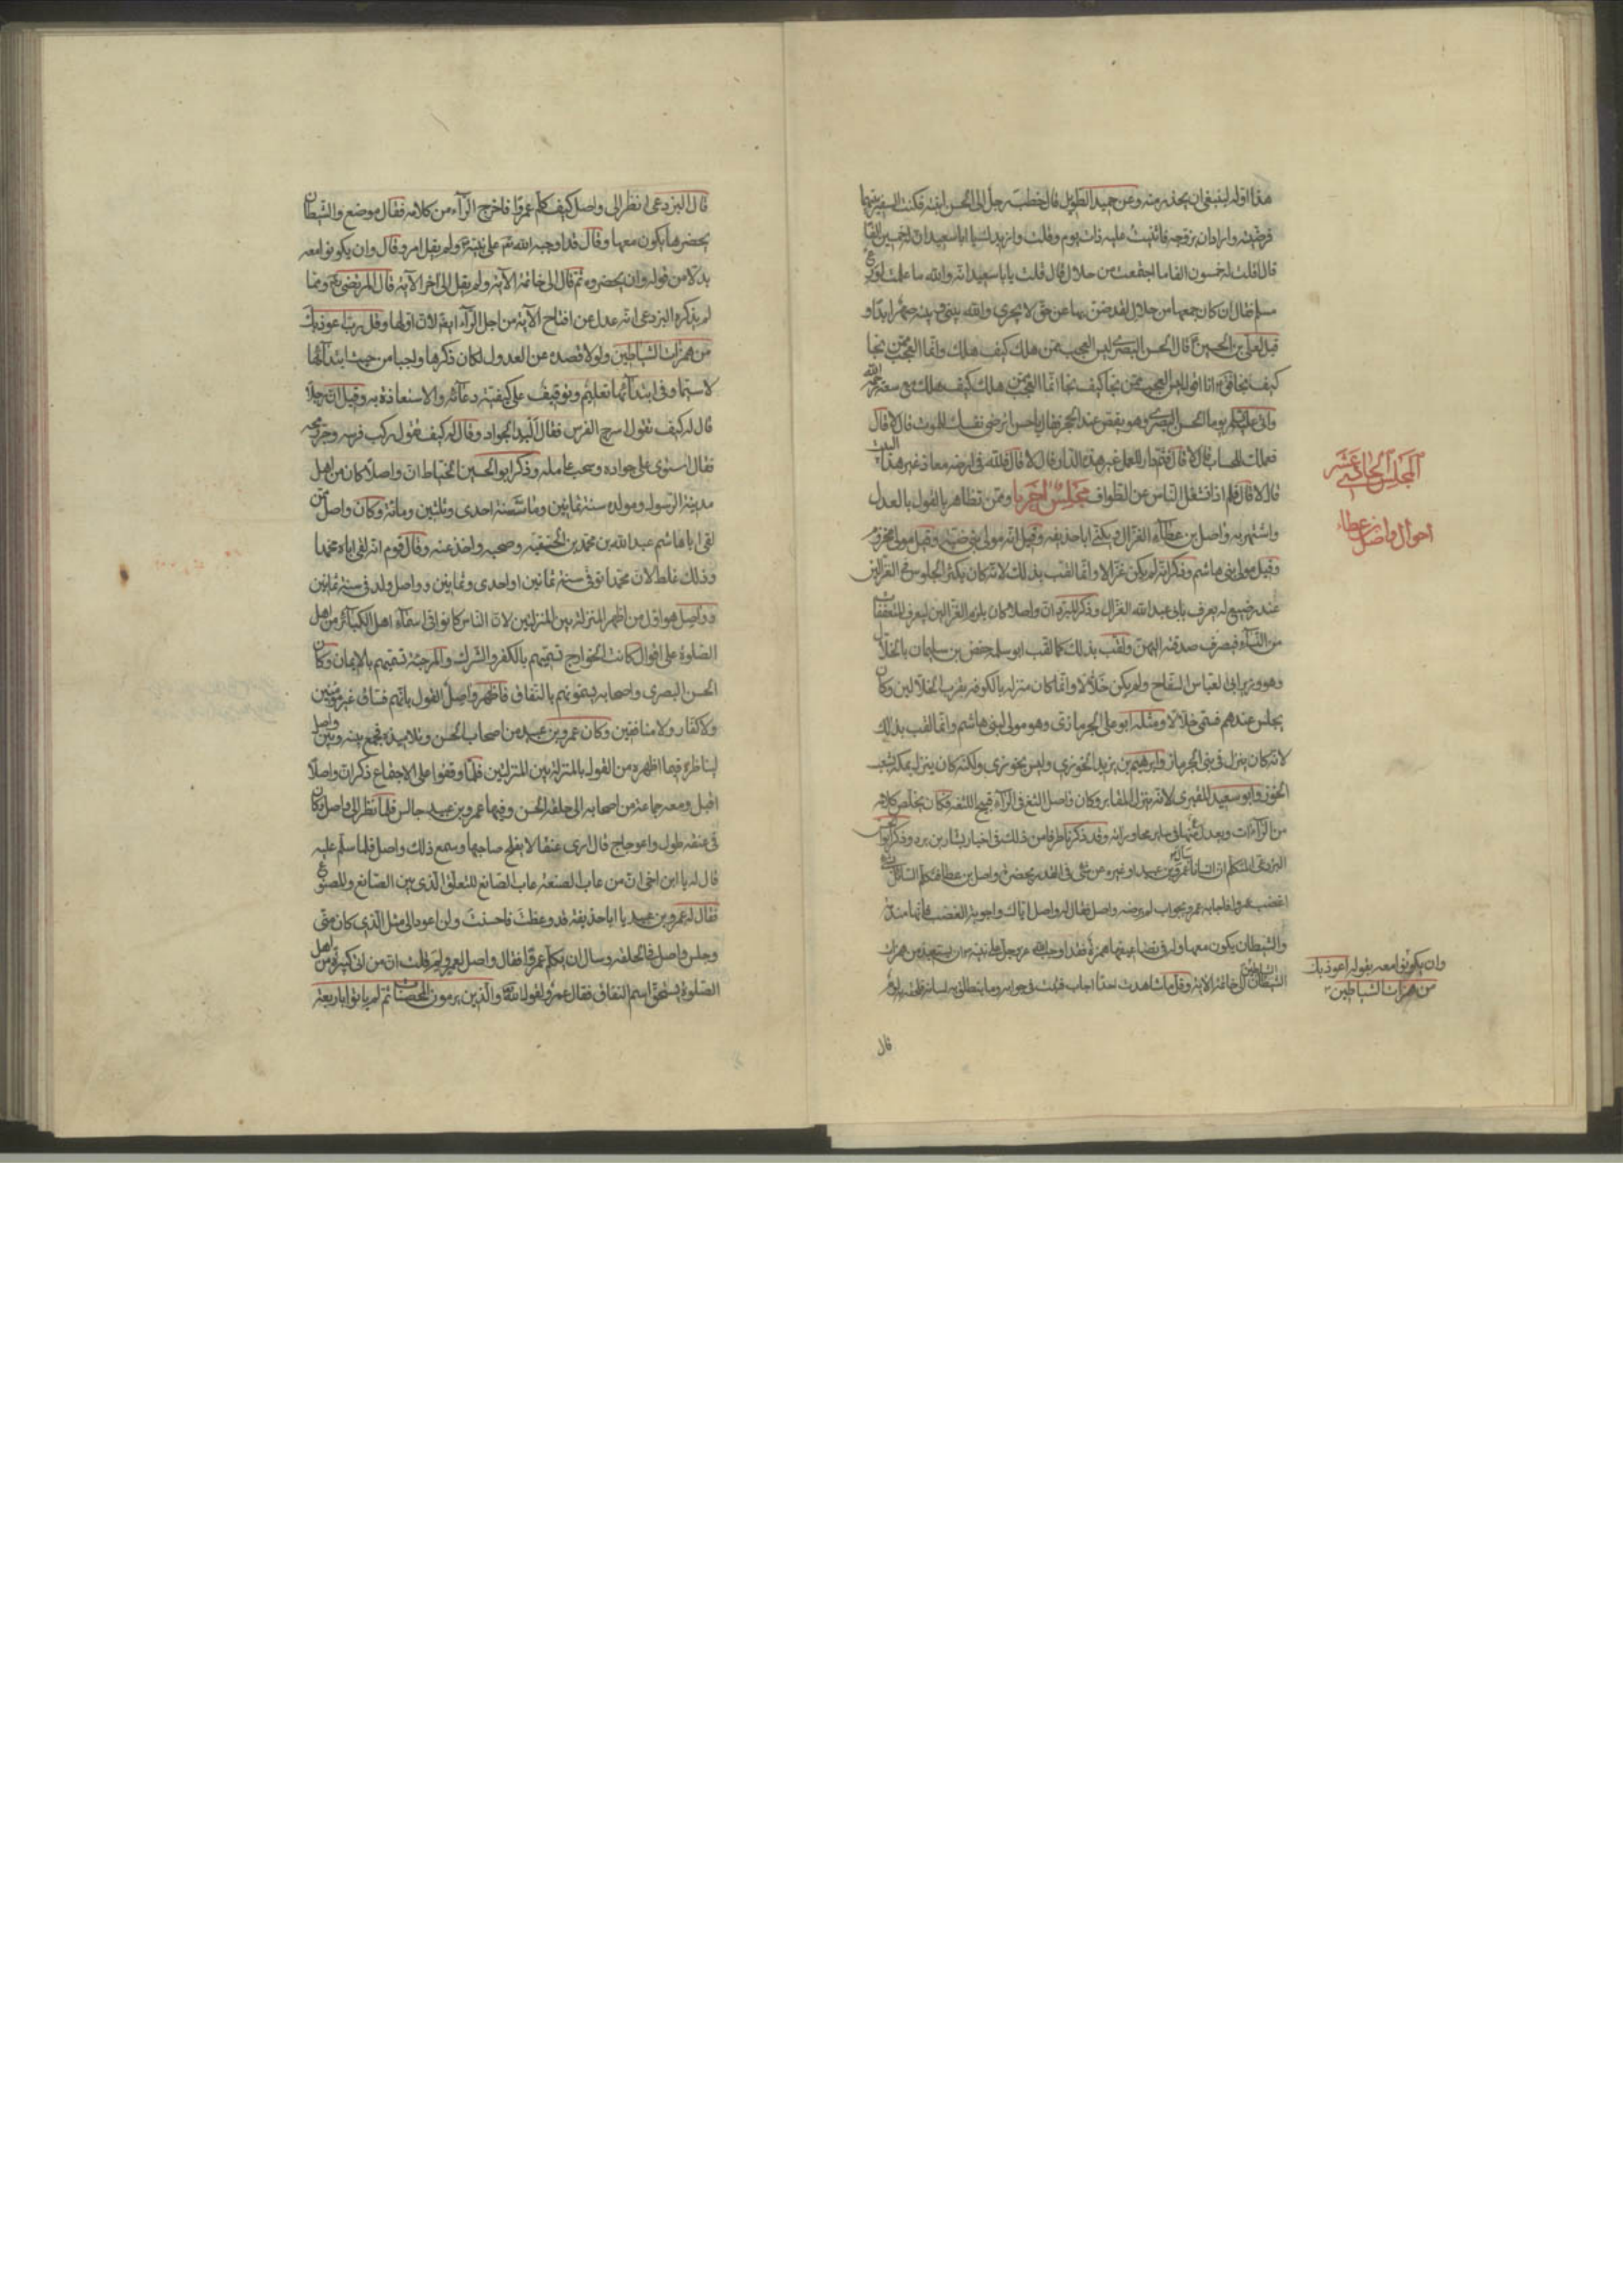 هذا اوله لينبغى ان يحذر منه وعن حميد الطويل قال خطب رجل الى الحسن ابنته فكنت السفير بينهما
فرضيته واراد ان يزوجه فاثنيت عليه ذات يوم وقلت وازيدك يا ابا سعيد ان له خمسين الفا
قال قلت له خمسون الفا ما اجتمعت من حلال قال قلت يا ابا سعيد انه والله ما علمت لورع
مسلم فقال ان كان جمعها من حلال لقد ضن بها عن حق لا يجرى والله بينى وبينه صهر ابدا و
قيل لعلى بن الحسين ع قال الحسن البصرى ليس العجب ممن هلك كيف هلك وانما العجب ممن نجا
كيف نجا فقال ع انا اقول ليس العجب ممن نجا كيف نجا انما العجب ممن هلك كيف هلك مع سعة رحمة الله
واتى على ع يوما الحسن البصرى وهو يقص عند الحجر فقال يا حسن اترضى نفسك للموت قال لا قال
فعملك للحساب قال لا قال فثم دار للعمل غير هذه الدار قال لا قال فلله فى ارضه معاذ غير هذا البيت
قال لا قال فلم اذا تشغل الناس عن الطواف مجلس اخر يا وممن تظاهر بالقول بالعدل
واشتهر به واصل بن عطآء الغزال ويكنى ابا حذيفة وقيل انه مولى بنى ضبة وقيل مولى مخزوم
وقيل مولى بنى هاشم وذكر انه لم يكن غزالا وانما لقب بذلك لانه كان يكثر الجلوس فى الغزالين
عند رضيع له يعرف بابى عبد الله الغزال وذكر المبرد ان واصلا كان يلزم الغزالين ليعرف المتعففات
من النسآء فيصرف صدقته اليهن ولقب بذلك كما لقب ابو سلمة حفص بن سليمان بالخلال
وهو وزير ابى العباس السفاح ولم يكن خلالا وانما كان منزله بالكوفة بقرب الخلالين وكان
يجلس عندهم فسمى خلالا ومثله ابو على الحرمازى وهو مولى لبنى هاشم وانما لقب بذلك
لانه كان ينزل فى بنى الحرماز وابرهيم بن يزيد الخوزى وليس بخوزى ولكنه كان ينزل بمكة بشعب
الخوز وابو سعيد المقبرى لانه ينزل المقابر وكان واصل الثغ فى الرآء قبيح اللثغة فكان يخلص كلامه
من الرآءات ويعدل عنها فى ساير محاوراته وقد ذكرنا طرفا من ذلك فى اخبار بشار بن برد وذكر ابو
البزدعى المتكلم ان انسانا سال عمرو بن عبيد او غيره عن شئ فى القدر بحضرة واصل بن عطآ فتكلم السائل بشئ
اغضب عمروا فاجابه عمرو بجواب لم يرضه واصل فقال له واصل اياك واجوبة الغضب فانها مندمة
والشيطان يكون معها وله فى تضاعيفها همزة وقد اوجب الله عز وجل على نبيه ص ان يستعيذ من همزات
الشيطان الى خاتمة الاية وقل ما شاهدت احدا اجاب فتثبت فى جوابه وما ينطلق به لسانه فلحقه لوم
قال
المجلس الحادى عشر
احوال واصل بن عطاء
وان يكونوا معه بقوله اعوذ بك
من همزات الشياطين
قال البزدعى انظر الى واصل كيف كلم عمروا فاخرج الرآء من كلامه فقال موضع والشيطان
يحضرها يكون معها وقال قد اوجب الله تع على نبيه ص ولم يقل امر وقال وان يكونوا معه
بدلا من قوله وان يحضروه ثم قال الى خاتمة الآية ولم يقل الى آخر الآية قال المرتضى رضى ومما
لم يذكره البزدعى انه عدل عن افتاح الآية من اجل الرآء ايضا لان اولها وقل رب اعوذ بك
من همزات الشياطين ولولا قصده عن العدول لكان ذكرها واجبا من حيث ابتدآئها
لا سيما وفى ابتدآئها تعليم وتوقيف على كيفية دعآئه والاستعاذة به وقيل ان رجلا
قال له كيف تقول اسرج الفرس فقال البد الجواد وقال له كيف تقول ركب فرسه وجر رمحه
فقال استوى على جواده وسحب عامله وذكر ابو الحسين الخياط ان واصلا كان من اهل
مدينة الرسول ومولده سنة ثمانين ومات سنة احدى وثلثين ومائة وكان واصل ممن
لقى ابا هاشم عبد الله بن محمد بن الحنفية وصحبه واخذ عنه وقال قوم انه لقى اباه محمدا
وذلك غلط لان محمدا توفى سنة ثمانين او احدى وثمانين وواصل ولد فى سنة ثمانين
وواصل هو اول من اظهر المنزلة بين المنزلتين لان الناس كانوا فى اسمآء اهل الكبآئر من اهل
الصلوة على اقوال كانت الخوارج تسميهم بالكفر والشرك والمرجئة تسميهم بالايمان وكان
الحسن البصرى واصحابه يسمونهم بالنفاق فاظهر واصل القول بانهم فساق غير مؤمنين
ولا كفار ولا منافقين وكان عمرو بن عبيد من اصحاب الحسن وتلاميذه فجمع بينه وبين واصل
ليناظره فيما اظهره من القول بالمنزلة بين المنزلتين فلما وقفوا على الاجتماع ذكر ان واصلا
اقبل ومعه جماعة من اصحابه الى حلقة الحسن وفيها عمرو بن عبيد جالس فلما نظر الى واصل وكان
فى عنقه طول واعوجاج قال ارى عنقا لا يفلح صاحبها وسمع ذلك واصل فلما سلم عليه
قال له يا ابن اخى ان من عاب الصنعة عاب الصانع للتعلق الذى بين الصانع والمصنوع
فقال له عمرو بن عبيد يا ابا حذيفة قد وعظت فاحسنت ولن اعود الى مثل الذى كان منى
وجلس واصل فى الحلقة وسال ان يكلم عمروا فقال واصل لعمرو لم قلت ان من اتى كبيرة من اهل
الصلوة يستحق اسم النفاق فقال عمرو لقول الله تع والذين يرمون المحصنات ثم لم ياتوا باربعة